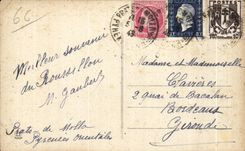 6c
Meilleur souvenir
du Roussillon
M. Gaubert
Prats de Mollo
Pyrénées Orientales
Madame et Mademoiselle
Clavières
2 quai de Bacalan
Bordeaux
Gironde